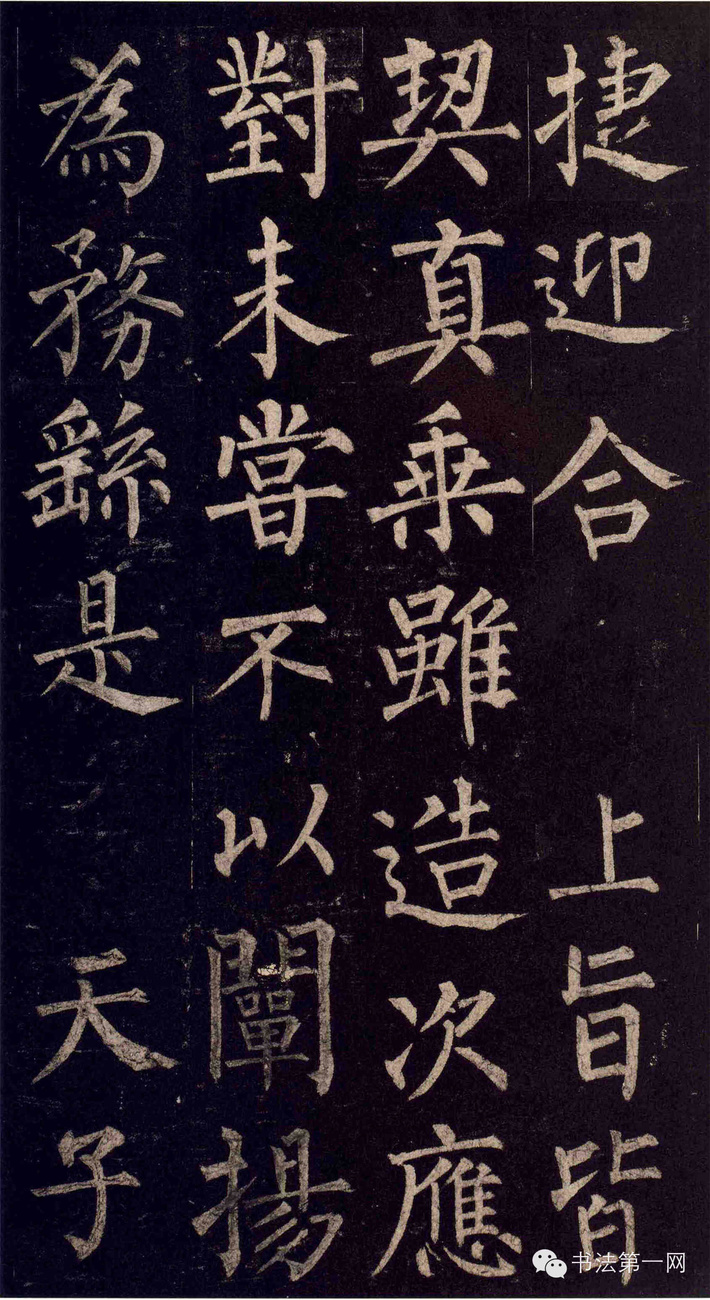 捷迎合 上旨皆
契真乗雖造次應
對未嘗不以闡揚
為務繇是 天子
书法第一网